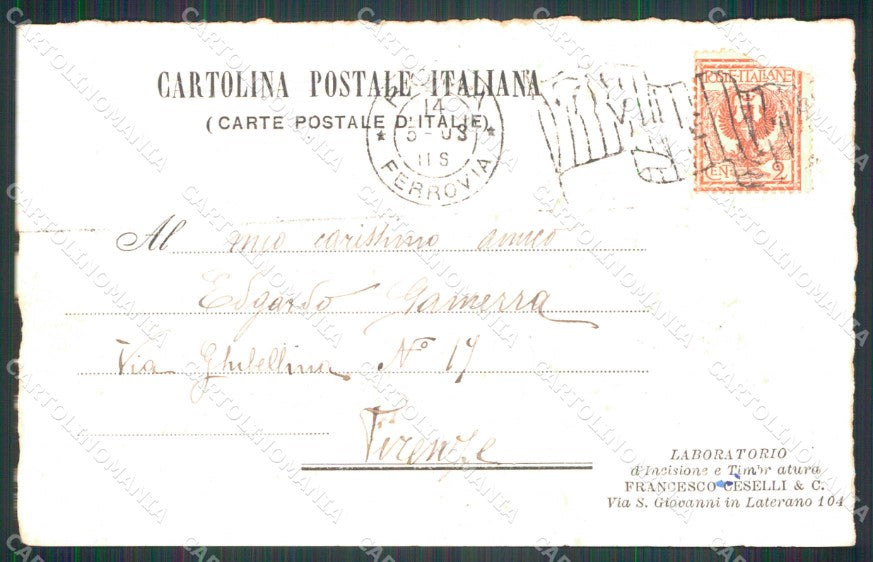 CARTOLINA POSTALE ITALIANA
(CARTE POSTALE D'ITALIE)
14
5-03
11S
FERROVIA
POSTE ITALIANE
CENT 2
Al mio carissimo amico
Edgardo Gamerra
Via Ghibellina N° 17
Firenze
LABORATORIO
d'Incisione e Timbratura
FRANCESCO CESELLI & C.
Via S. Giovanni in Laterano 104
CARTOLINOMANIA